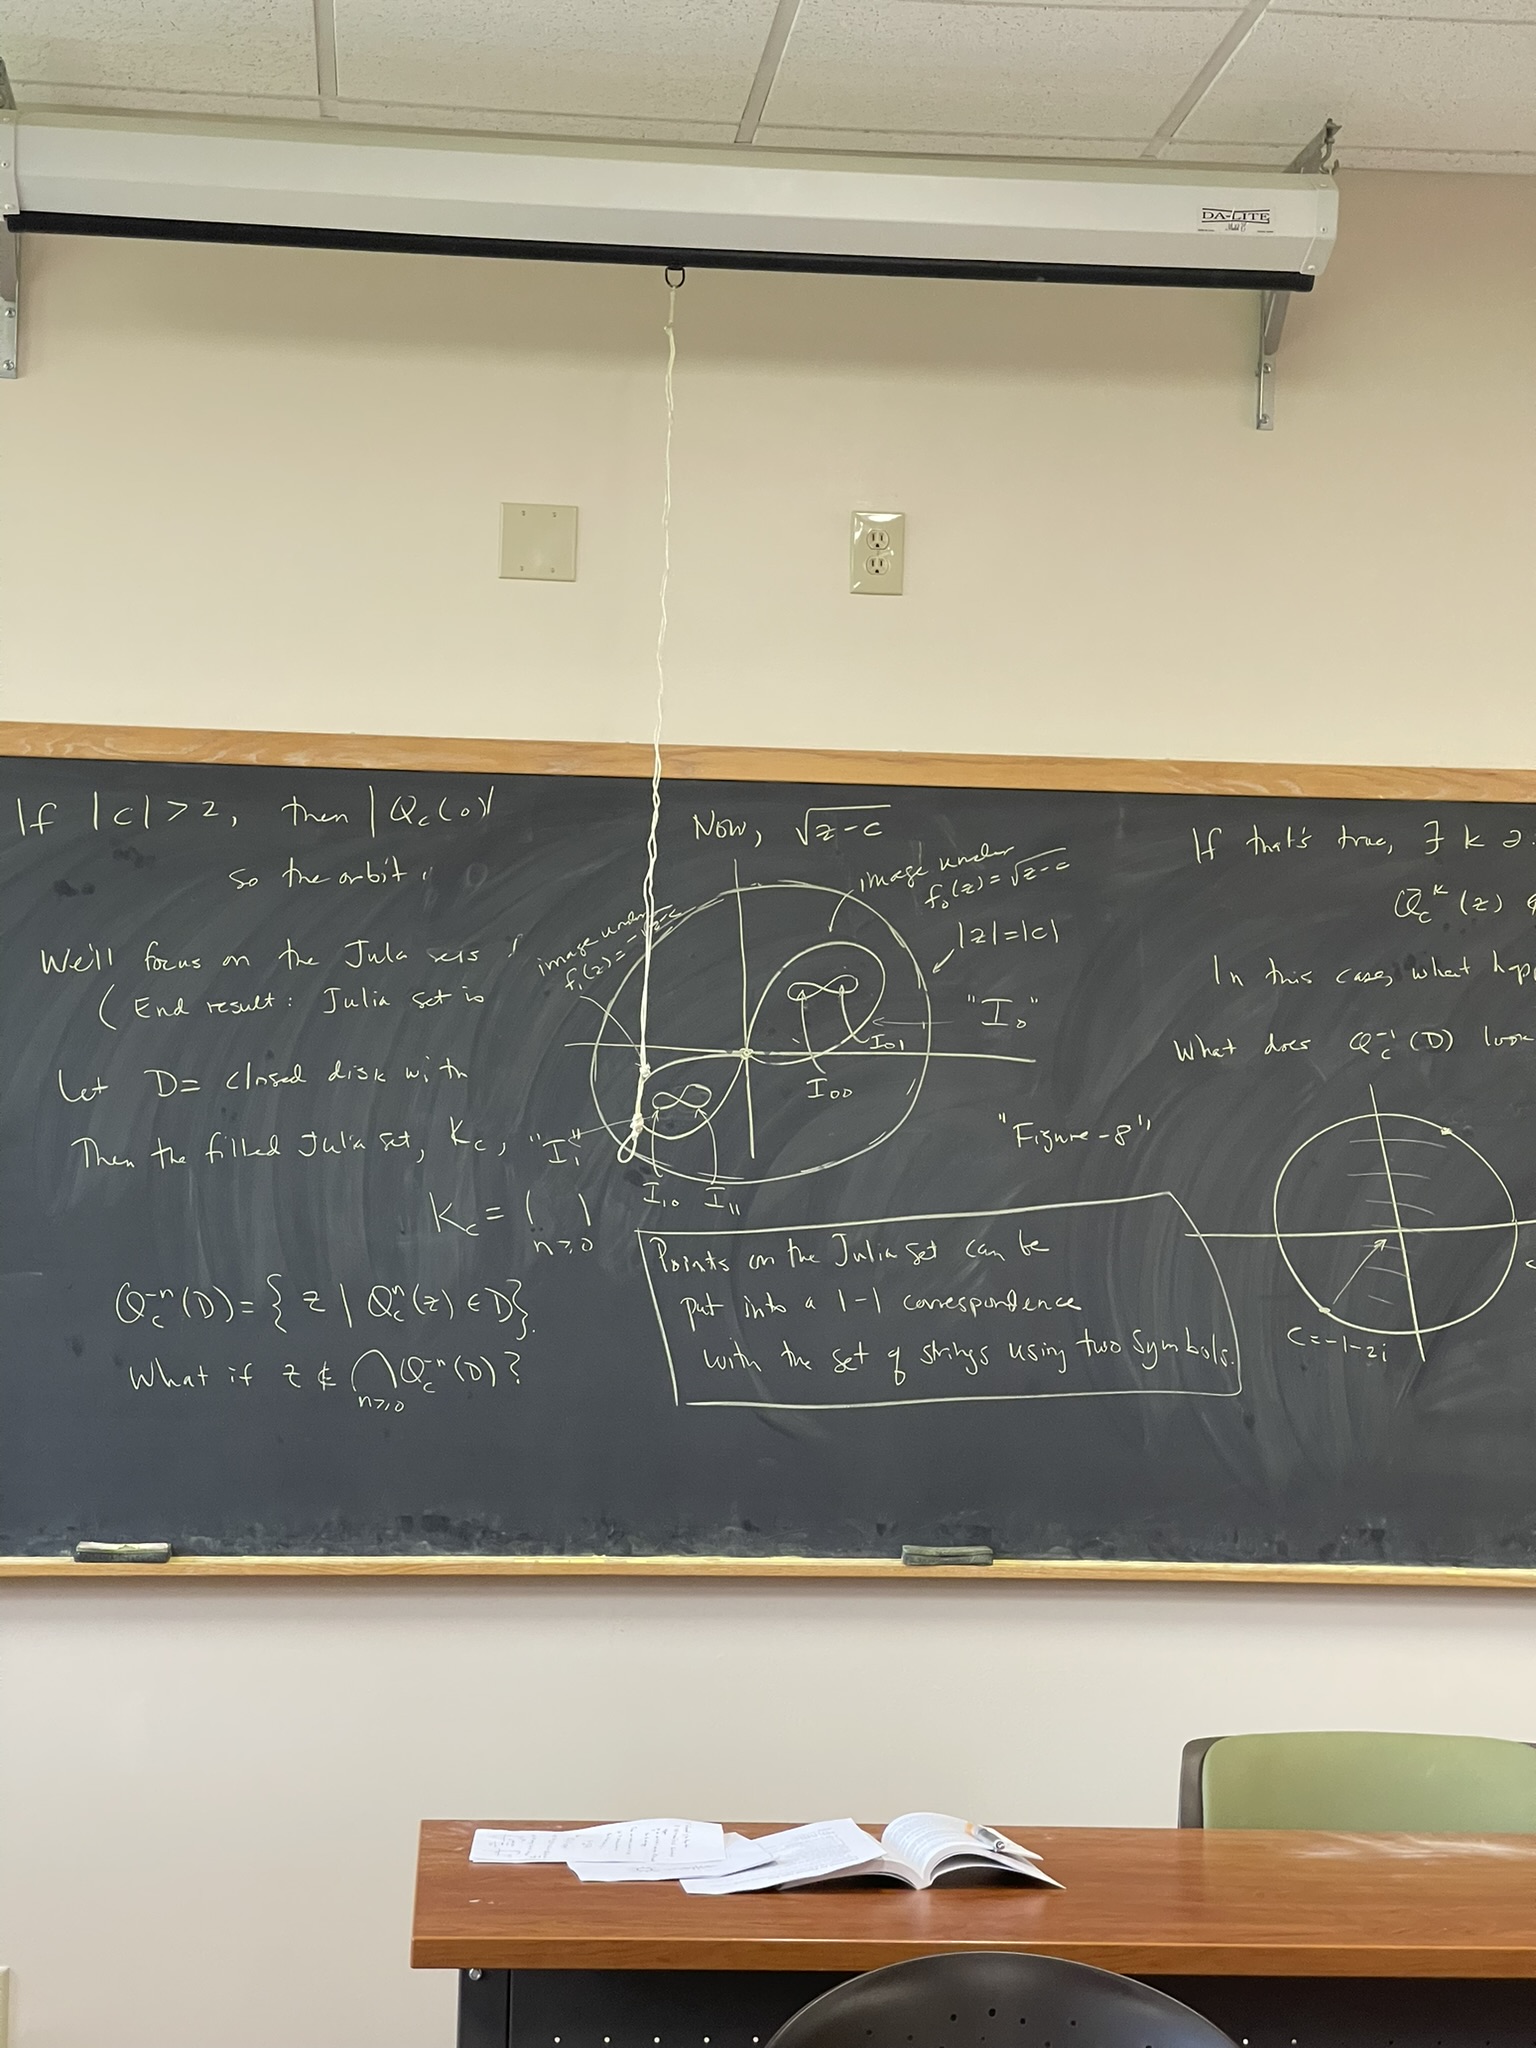 DA-LITE
If |c| > 2, then |Q_c(0)|
so the orbit
We'll focus on the Jula sets
(End result: Julia set is
Let D = closed disk with
Then the filled Julia set, K_c,
K_c = ⋂_{n≥0}
Q_c^{-n}(D) = { z | Q_c^n(z) ∈ D}.
What if z ∉ ⋂_{n≥0} Q_c^{-n}(D)?
Now, √z-c
image under
f_0(z) = √z-c
image under
f_1(z) = -√z-c
|z| = |c|
"I_0"
I_01
I_00
"I_1"
I_10 I_11
"Figure-8"
Points on the Julia set can be
put into a 1-1 correspondence
with the set of strings using two symbols.
If that's true, ∃ k ∋
Q_c^k(z) ∉
In this case, what happ
What does Q_c^{-1}(D) look
c = -1-2i